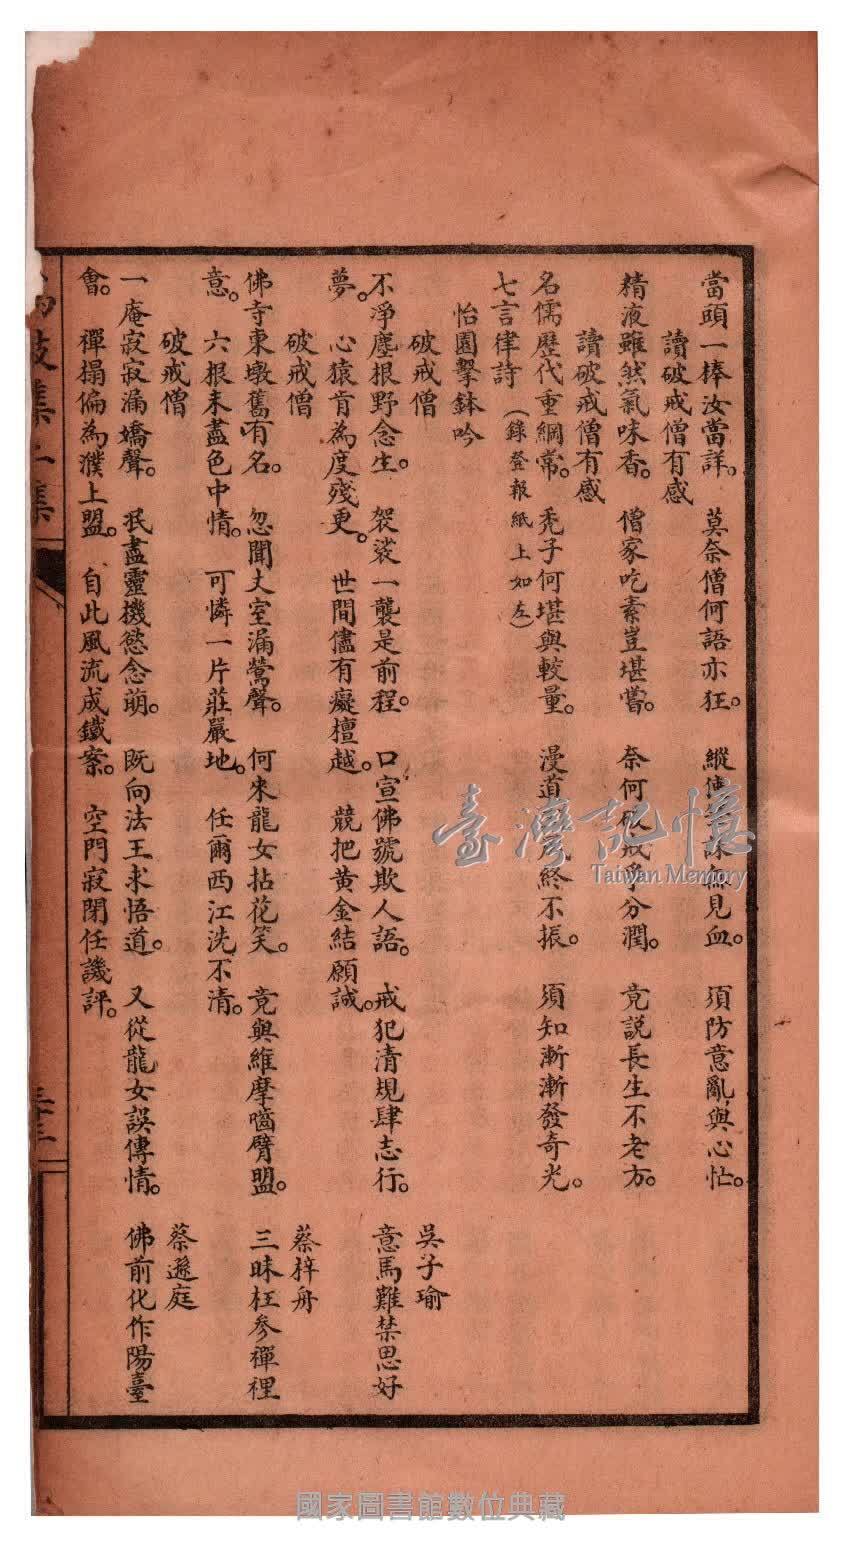 當頭一捧汝當詳。莫奈僧何語亦狂。縱使 無見血。須防意亂與心忙。
讀破戒僧有感
精液雖然氣味香。僧家吃素豈堪嘗。奈何破戒爭分潤。竟說長生不老方。
讀破戒僧有感
名儒歷代重綱常。禿子何堪與較量。漫道 終不振。須知漸漸發奇光。
七言律詩 (錄登報紙上如左)
怡園擊鉢吟
破戒僧 吳子瑜
不淨塵根野念生。袈裟一襲是前程。口宣佛號欺人語。戒犯清規肆志行。意馬難禁思好
夢。心猿肯為度殘更。世間儘有癡檀越。競把黃金結願誠。
破戒僧 蔡梓舟
佛寺東墩舊有名。忽聞丈室漏鶯聲。何來龍女拈花笑。竟與維摩嚙臂盟。三昧枉參禪裡
意。六根未盡色中情。可憐一片莊嚴地。任爾西江洗不清。
破戒僧 蔡遜庭
一庵寂寂漏嬌聲。泯盡靈機慾念萌。既向法王求悟道。又從龍女誤傳情。佛前化作陽臺
會。禪榻偏為濮上盟。自此風流成鐵案。空門寂閉任譏評。
集二集
臺灣記憶
Taiwan Memory
國家圖書館數位典藏